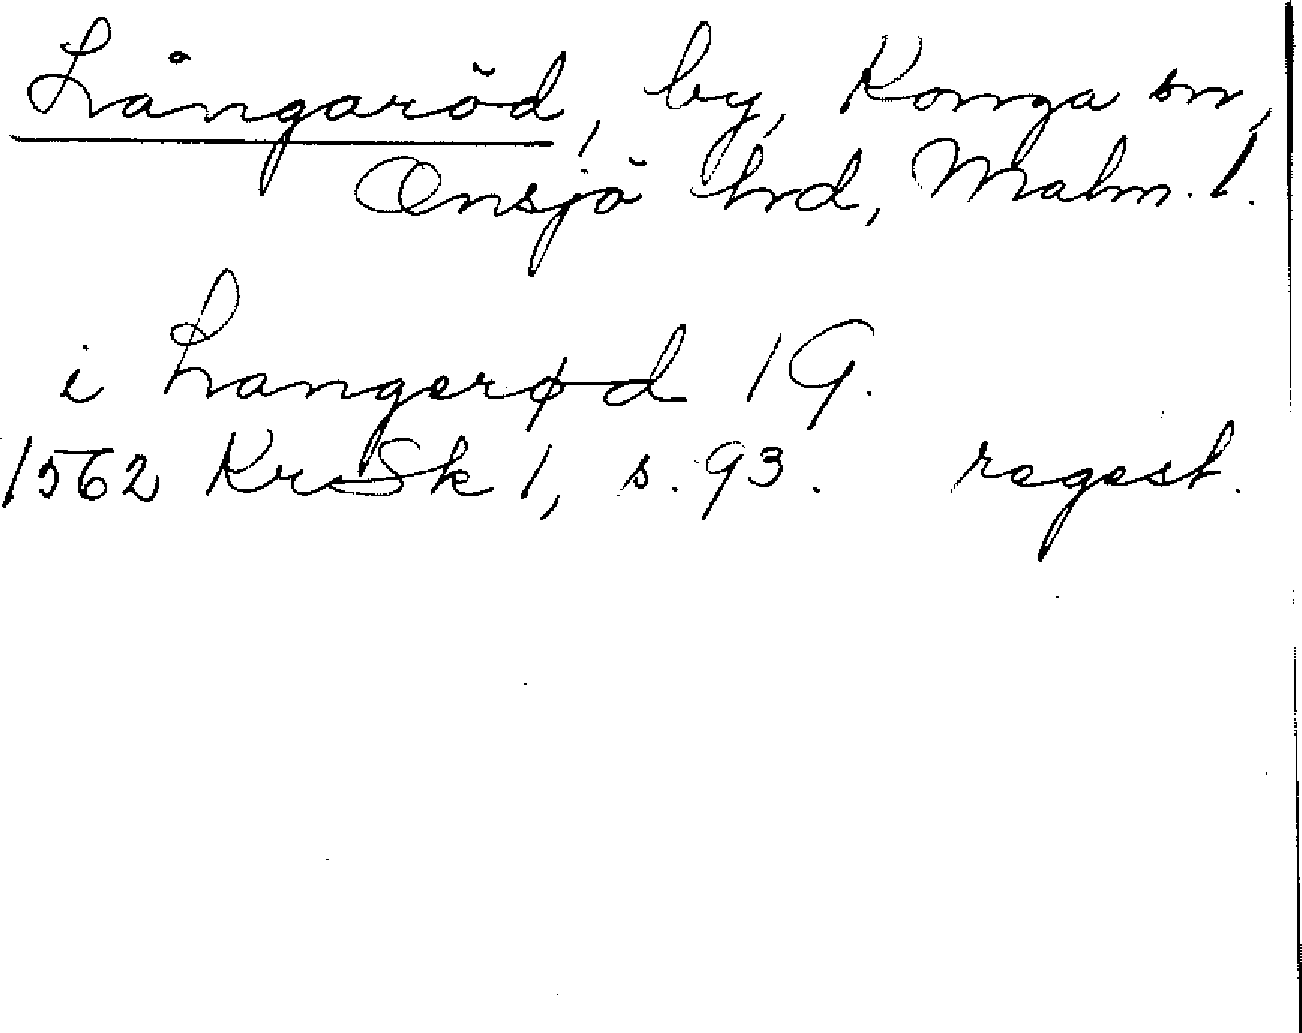 Långaröd, by, Konga sn,
Onsjö hrd, Malm. l.
i Langerød 1 G.
1562 KrSk 1, s. 93. regest.